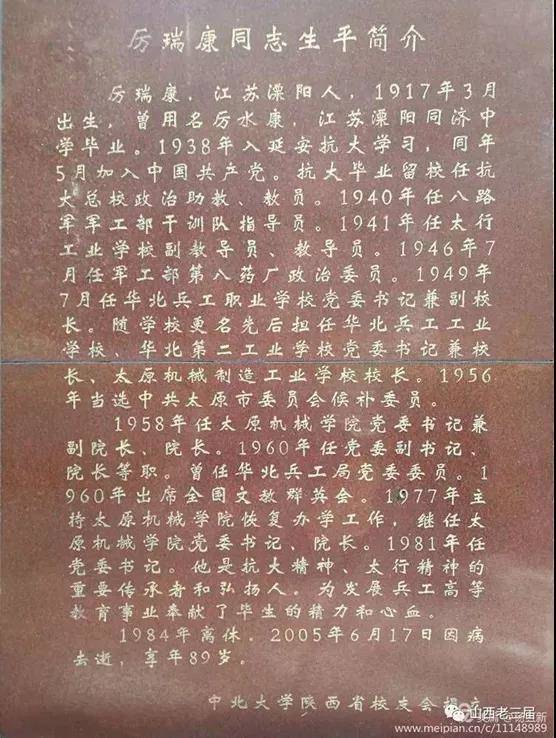 厉瑞康同志生平简介
厉瑞康，江苏溧阳人，1917年3月
出生，曾用名厉水康，江苏溧阳同济中
学毕业。1938年入延安抗大学习，同年
5月加入中国共产党。抗大毕业留校任抗
大总校政治助教、教员。1940年任八路
军军工部干训队指导员。1941年任太行
工业学校副教导员、教导员。1946年7
月任军工部第八药厂政治委员。1949年
7月任华北兵工职业学校党委书记兼副校
长。随学校更名先后担任华北兵工工业
学校、华北第二工业学校党委书记兼校
长、太原机械制造工业学校校长。1956
年当选中共太原市委员会候补委员。
1958年任太原机械学院党委书记兼
副院长、院长。1960年任党委副书记、
院长等职。曾任华北兵工局党委委员。1
960年出席全国文教群英会。1977年主
持太原机械学院恢复办学工作，继任太
原机械学院党委书记、院长。1981年任
党委书记。他是抗大精神、太行精神的
重要传承者和弘扬人。为发展兵工高等
教育事业奉献了毕生的精力和心血。
1984年离休。2005年6月17日因病
去逝，享年89岁。
中北大学陕西省校友会
山西老三届
www.meipian.cn/c/11148989